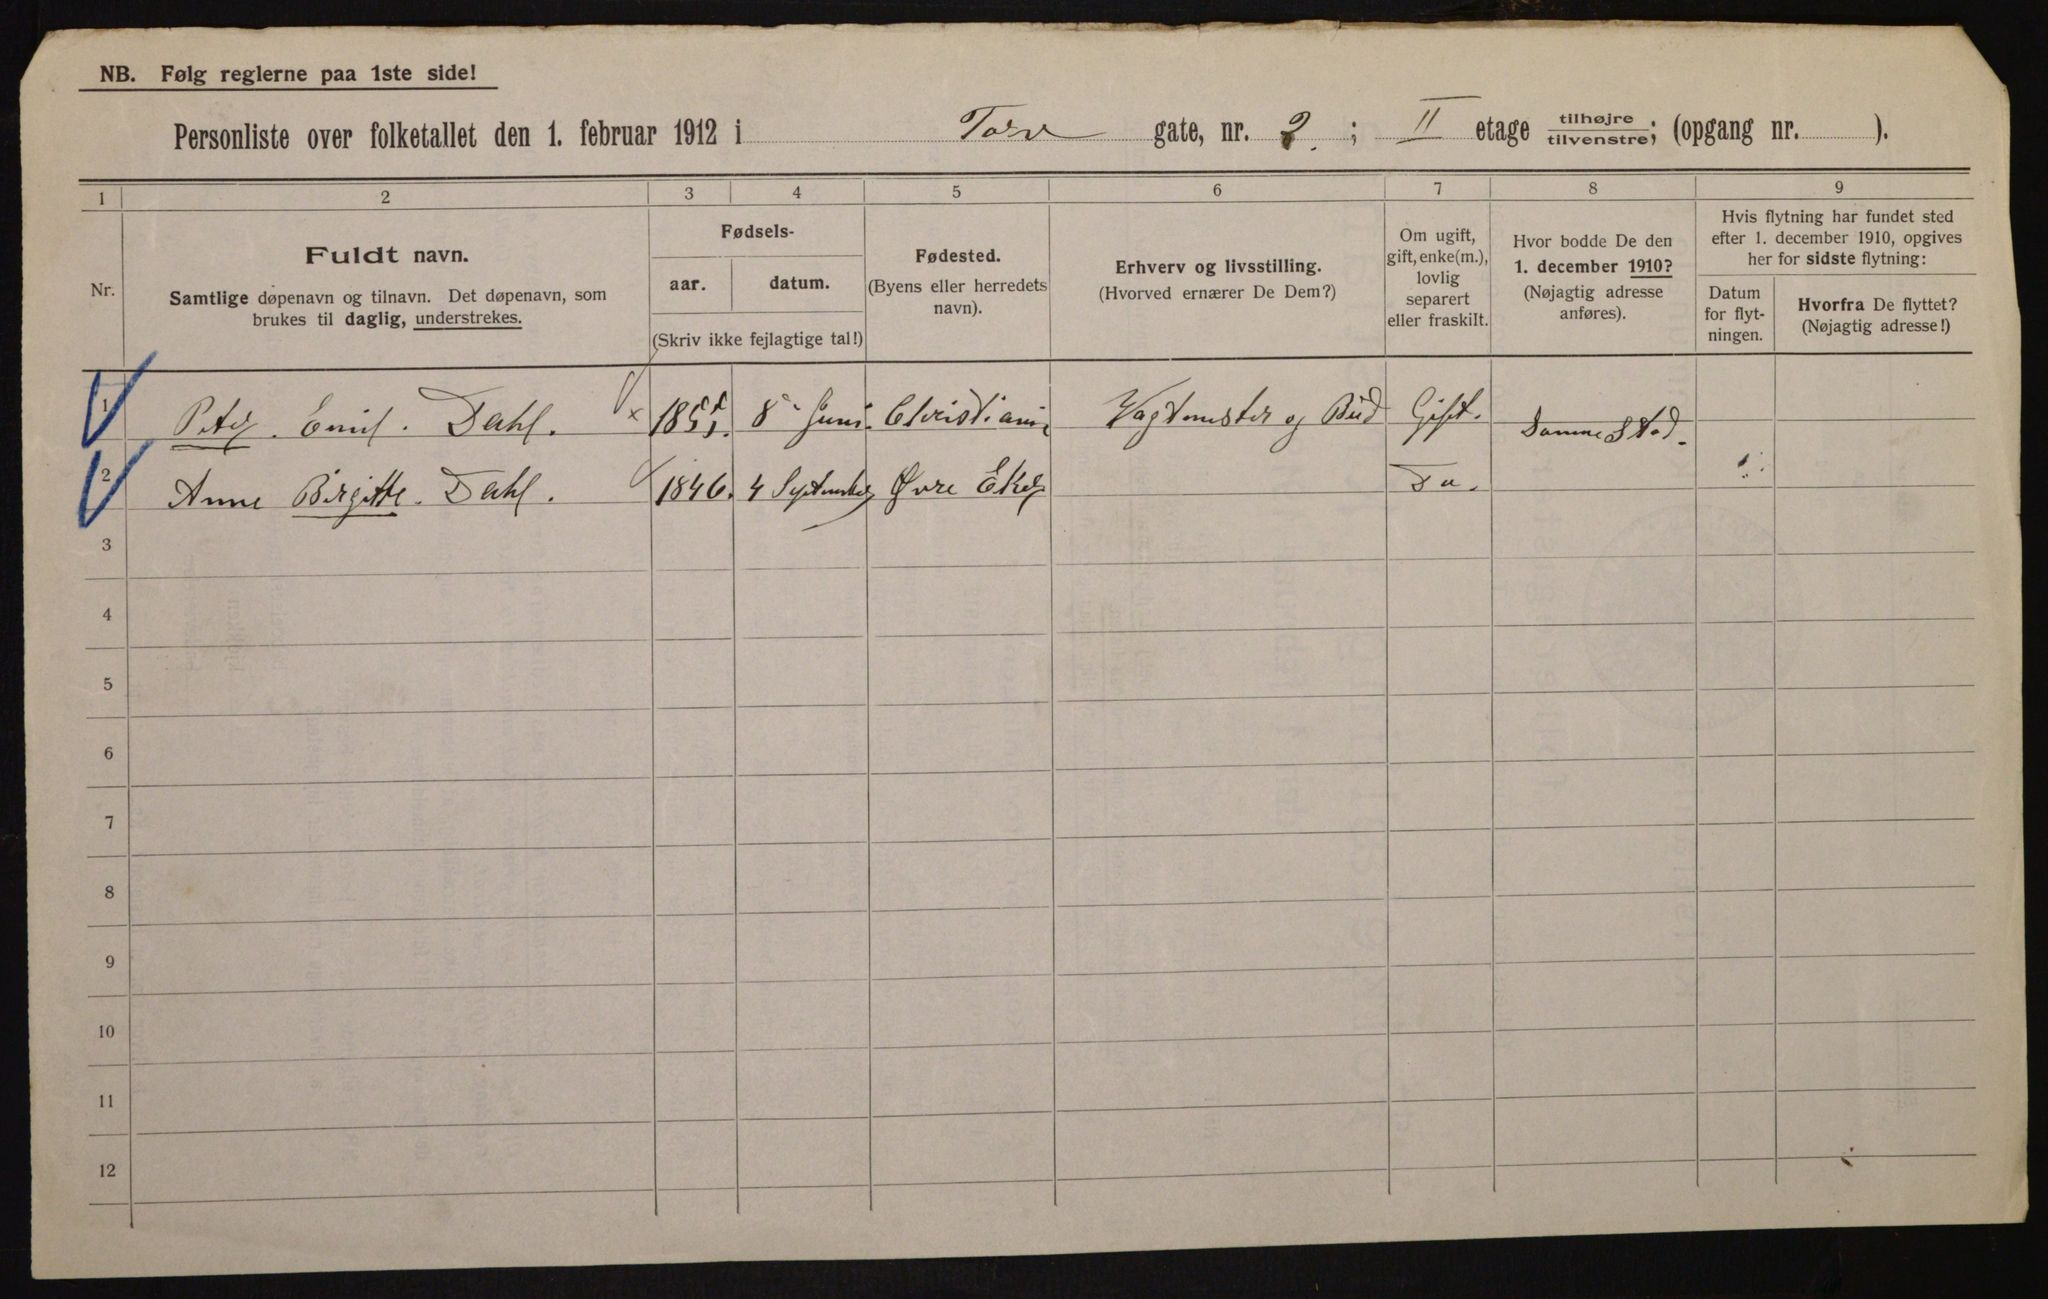 NB. Følg reglerne paa 1ste side!
Personliste over folketallet den 1. februar 1912 i Torv gate, nr. 2. ; II etage tilhøjre/tilvenstre; (opgang nr. ).
1 2 3 4 5 6 7 8 9
Nr.
Fuldt navn.
Samtlige døpenavn og tilnavn. Det døpenavn, som
brukes til daglig, understrekes.
Fødsels-
aar. datum.
(Skriv ikke fejlagtige tal!)
Fødested.
(Byens eller herredets
navn).
Erhverv og livsstilling.
(Hvorved ernærer De Dem?)
Om ugift,
gift, enke(m.),
lovlig
separert
eller fraskilt.
Hvor bodde De den
1. december 1910?
(Nøjagtig adresse
anføres).
Hvis flytning har fundet sted
efter 1. december 1910, opgives
her for sidste flytning:
Datum
for flyt-
ningen.
Hvorfra De flyttet?
(Nøjagtig adresse!)
1 Peter. Emil. Dahl. x 1855. 8 Juni Christiania Vagtmester og Bud Gift. Samme Sted.
2 Anne Birgitte. Dahl. 1846. 4 September Øvre Eker Do.
3
4
5
6
7
8
9
10
11
12